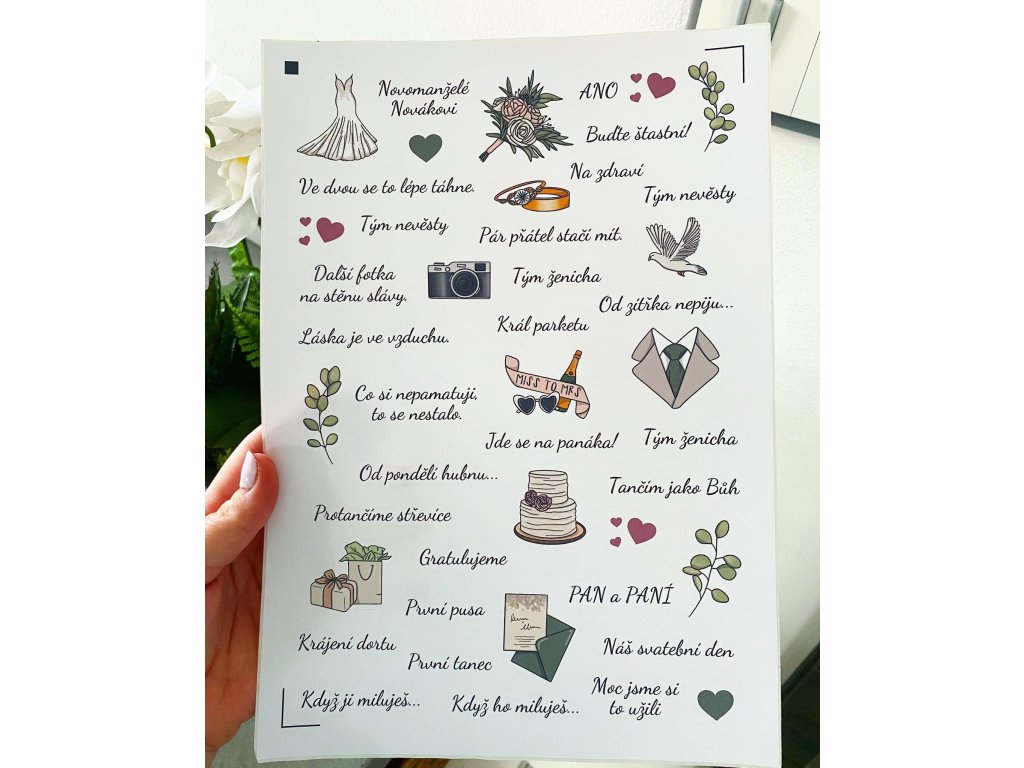 Novomanželé
Novákovi
ANO
Buďte štastní!
Na zdraví
Ve dvou se to lépe táhne.
Tým nevěsty
Tým nevěsty
Pár přátel stačí mít.
Další fotka
na stěnu slávy.
Tým ženicha
Od zítřka nepiju...
Král parketu
Láska je ve vzduchu.
MISS TO MRS
Co si nepamatuji,
to se nestalo.
Jde se na panáka!
Tým ženicha
Od pondělí hubnu...
Tančím jako Bůh
Protančíme střevíce
Gratulujeme
PAN a PANÍ
První pusa
Krájení dortu
Náš svatební den
První tanec
Když ji miluješ...
Když ho miluješ...
Moc jsme si
to užili